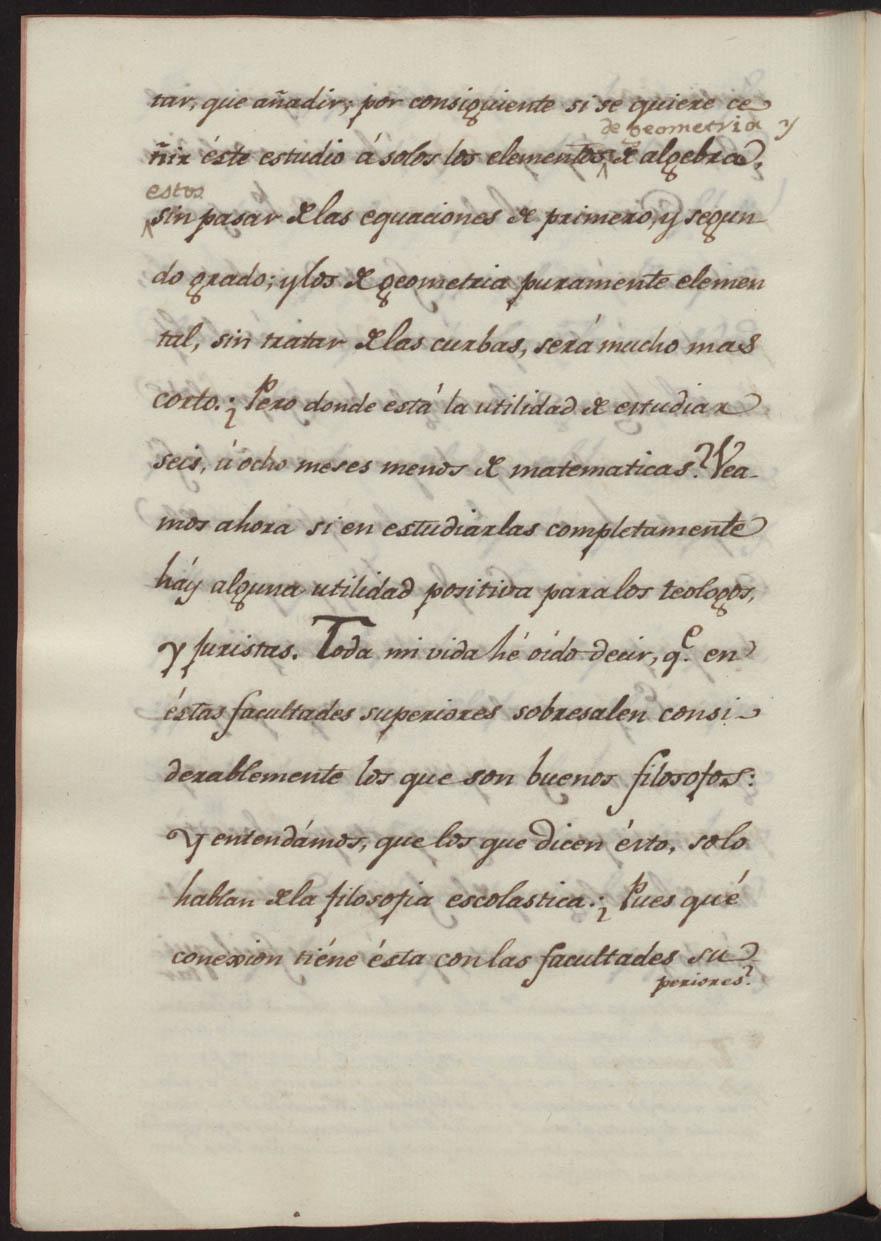 tar, que añadir; por consiguiente si se quiere ce
de geometria y
ñir éste estudio á solos los elementos de algebra,
estos
sin pasar de las equaciones de primero, y segun-
do grado; y los de geometria puramente elemen
tal, sin tratar de las curbas, será mucho mas
corto. ¿Pero donde está la utilidad de estudiar
seis, ú ocho meses menos de matematicas? Vea-
mos ahora si en estudiarlas completamente
háy alguna utilidad positiva para los teologos,
y juristas. Toda mi vida hé oído decir, q.e en
éstas facultades superiores sobresalen consi-
derablemente los que son buenos filosofos:
y entendámos, que los que dicen ésto, solo
hablan de la filosofia escolastica. ¿Pues qué
conexion tiéne ésta con las facultades su-
periores?